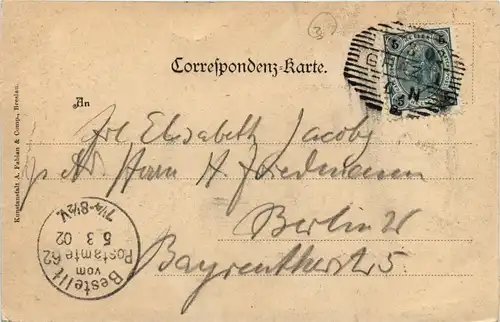 3)
5
5
GRAZ
Correspondenz-Karte.
An
Frl Elisabeth Jacoby
p. Ad. Herrn H. Friedmann
Berlin W
Bayreutherstr 5
Bestellt
vom
Postamte 62
5 3 02
7¼-8½V.
Kunstanstalt A. Fabian & Comp., Breslau.